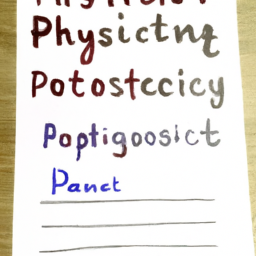 Physictnt
Potostccicy
Poptigoosict
Panct